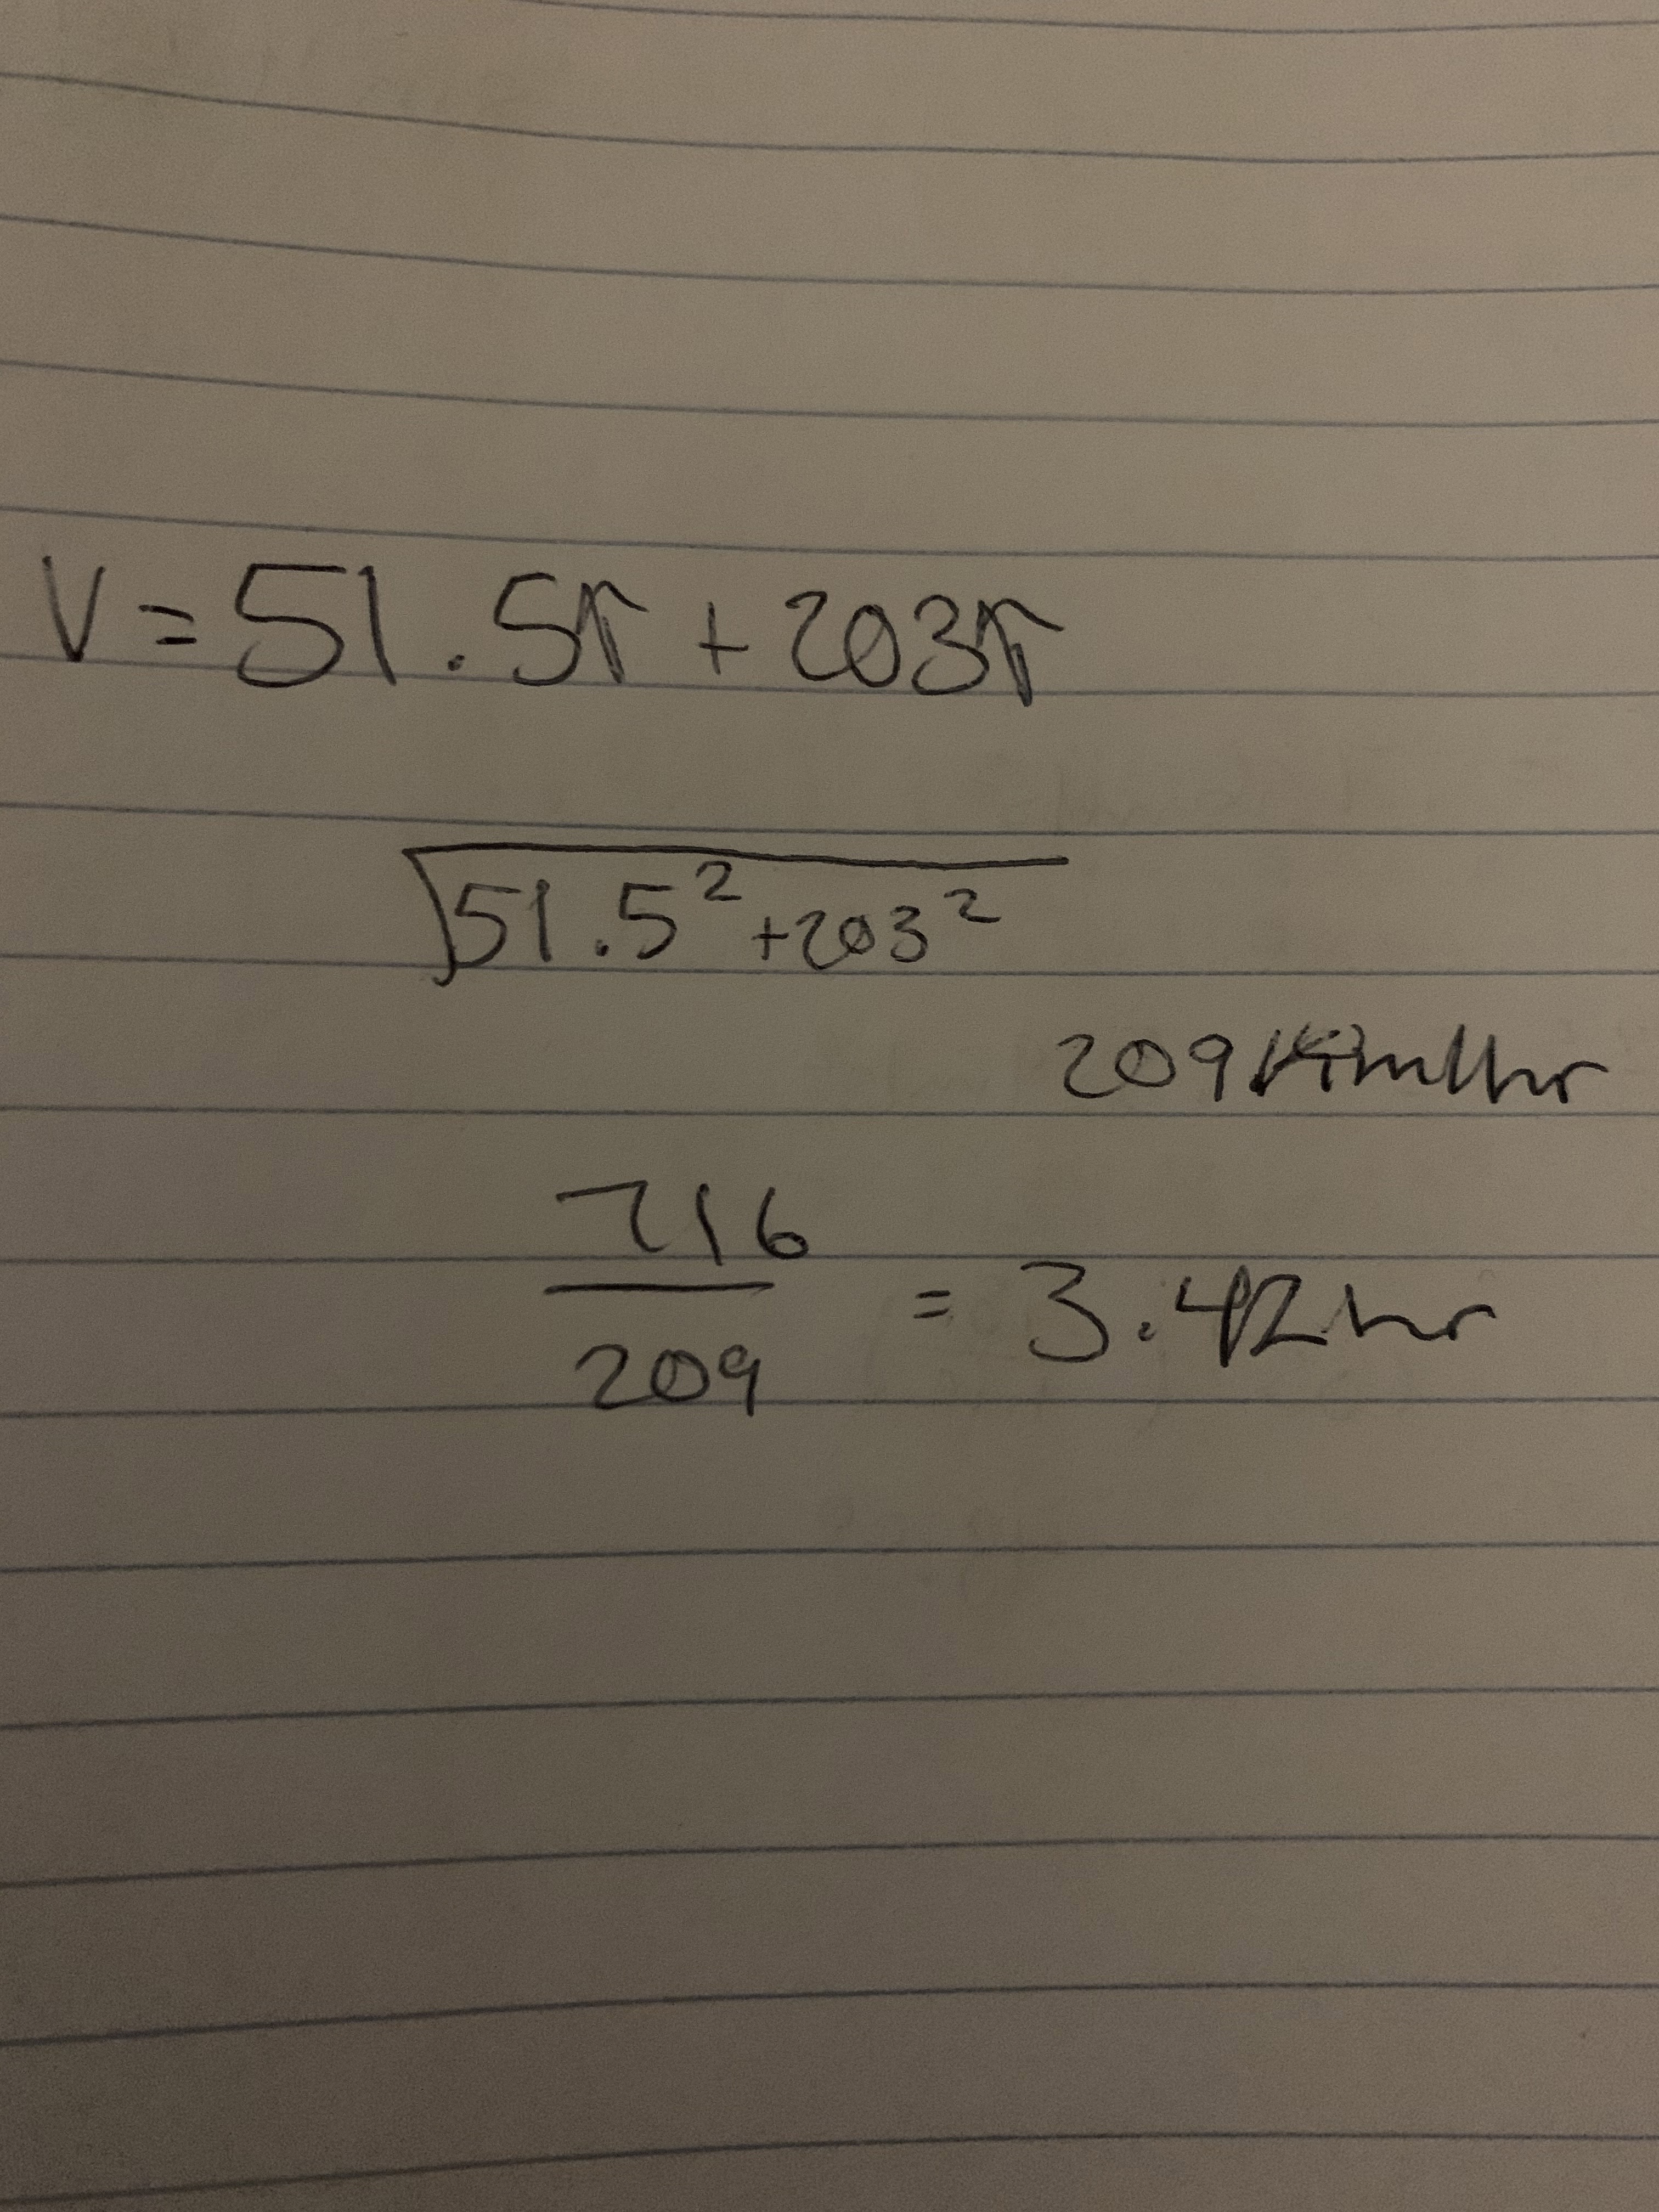 V = 51.5r + 203r
√51.5² + 203²
209 Km/hr
716
209
= 3.42 hr